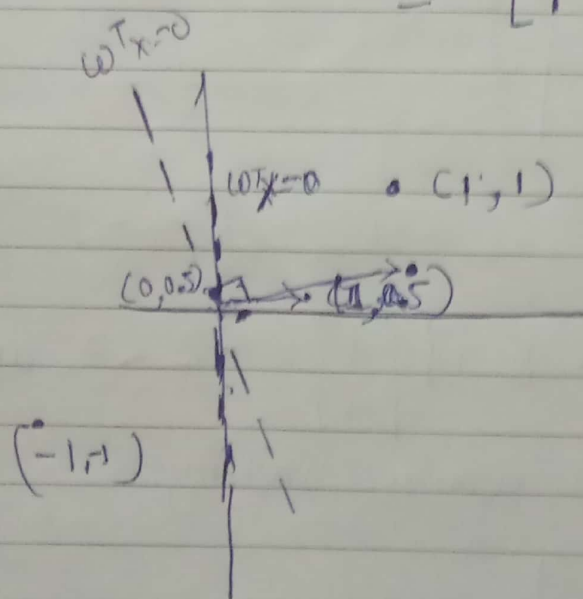 ωᵀx=0
ωᵀx=0
(1, 1)
(0,0.5)
(-1,-1)